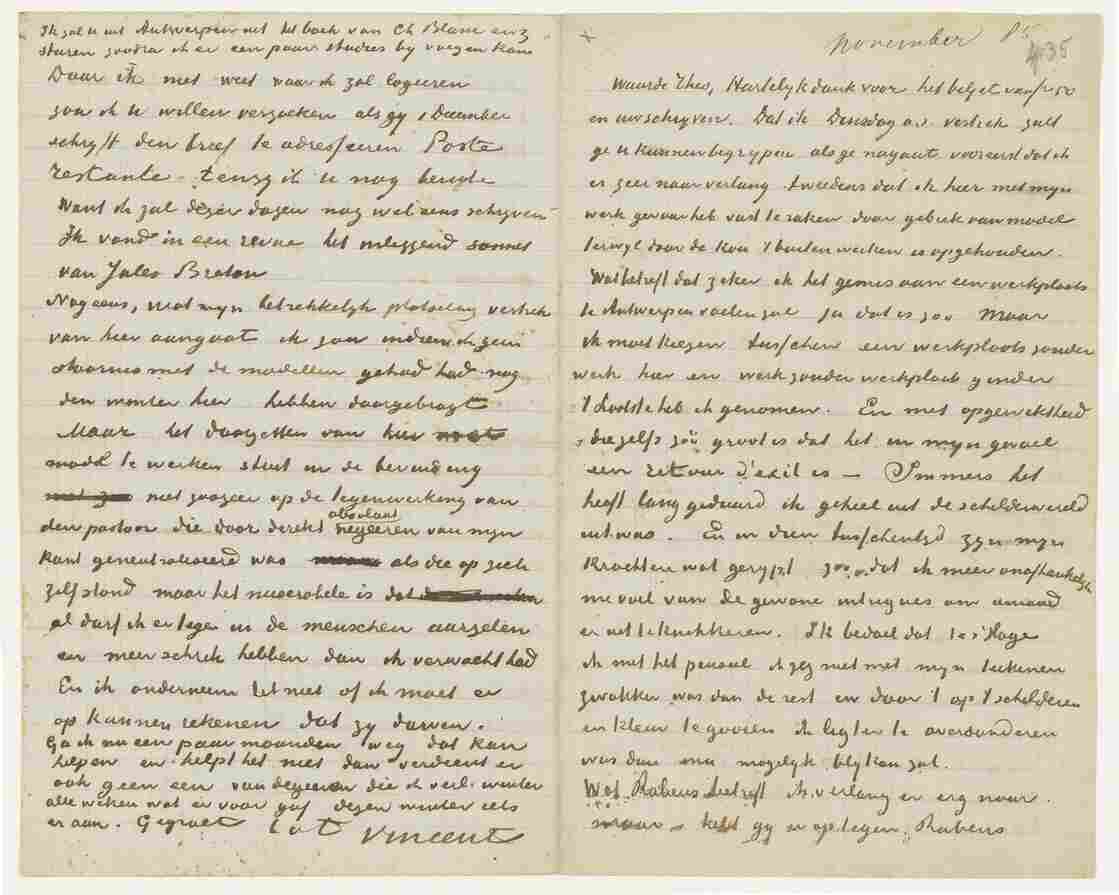 Ik zal u uit Antwerpen uit het boek van Ch Blanc enz
sturen zoodra ik er een paar studies by voegen kan
Daar ik niet weet waar ik zal logeeren
zou ik u willen verzoeken als gy 1 December
schryft den brief te adresseeren Poste
restante. Tenzy ik u nog berigte
Want ik zal dezer dagen nog wel eens schryven
Ik vond in een revue het inliggend sonnet
van Jules Breton
Nog eens, wat myn betrekkelyk plotseling vertrek
van hier aangaat ik zou indien ik geen
stoornis met de modellen gehad had nog
den winter hier hebben doorgebragt
Maar het doorzetten van hier
model te werken stuit in de bevinding
niet zoozeer op de tegenwerking van
den pastoor die door direkt absoluut negeeren van myn
kant geneutraliseerd was als die op zich
zelf stond maar het miserabele is dat
al durf ik er tegen in de menschen aarzelen
en meer schrik hebben dan ik verwacht had
En ik onderneem het niet of ik moet er
op kunnen rekenen dat zy durven.
Ga ik nu een paar maanden weg dat kan
helpen en helpt het niet dan verdient er
ook geen een van degenen die ik verl. winter
alle weken wat er voor gaf dezen winter iets
er aan. Gegroet t. à t. Vincent
November 85
435
Waarde Theo, Hartelyk dank voor het beljet van fr 50
en uw schryven. Dat ik Dingsdag a.s. vertrek zult
ge u kunnen begrypen als ge nagaat vooreerst dat ik
er zeer naar verlang tweedens dat ik hier met myn
werk gevaar heb vast te raken door gebrek van model
terwyl door de kou 't buiten werken is opgehouden.
Wat betreft dat zeker ik het gemis aan een werkplaats
te Antwerpen voelen zal ja dat is zoo Maar
ik moet kiezen tusschen een werkplaats zonder
werk hier en werk zonder werkplaats ginder
't Laatste heb ik genomen. En met opgewektheid
die zelfs zoo groot is dat het in myn gevoel
een retour d'exil is — Immers het
heeft lang geduurd ik geheel uit de schilderwereld
uit was. En in dien tusschentyd zyn myn
krachten wat gerypt zoo dat ik meer onafhankelyk
me voel van de gewone intrigues om iemand
er uit te knikkeren. Ik bedoel dat te s'Hage
ik met het penseel ik zeg niet met myn teekenen
zwakker was dan de rest en daar 't op 't schilderen
en kleur te gooien ik ligter te overdonderen
was dan nu mogelyk blyken zal.
Wat Rubens betreft ik verlang er erg naar.
maar hebt gy er op tegen Rubens